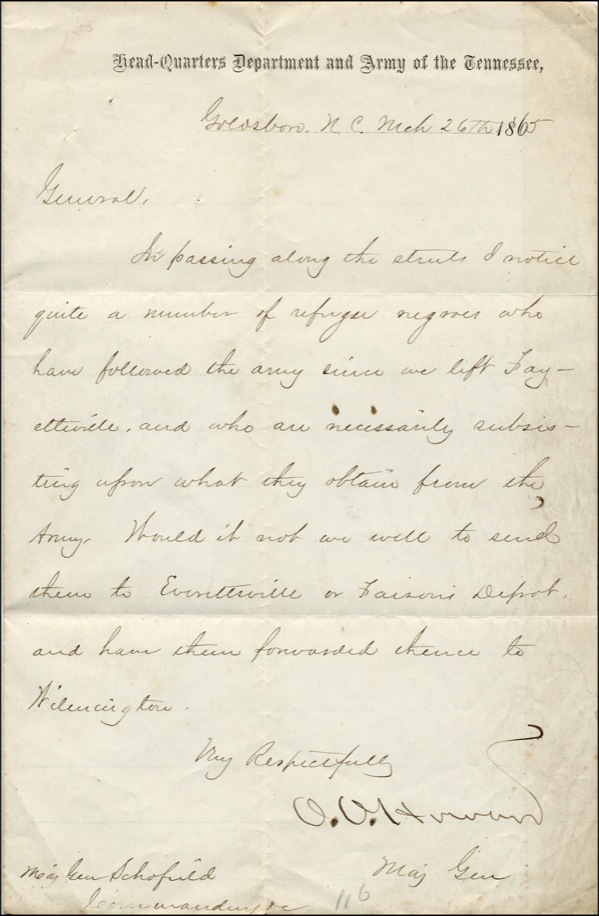 Head-Quarters Department and Army of the Tennessee,
Goldsboro. N. C. Mch 26th 1865
General,
In passing along the streets I notice
quite a number of refugee negroes who
have followed the army since we left Fay-
etteville, and who are necessarily subsis-
ting upon what they obtain from the
Army. Would it not be well to send
them to Everettsville or Faison's Depot.
and have them forwarded thence to
Wilmington.
Very Respectfully
O. O. Howard
Maj Gen
Maj Gen Schofield
Commanding &c
116